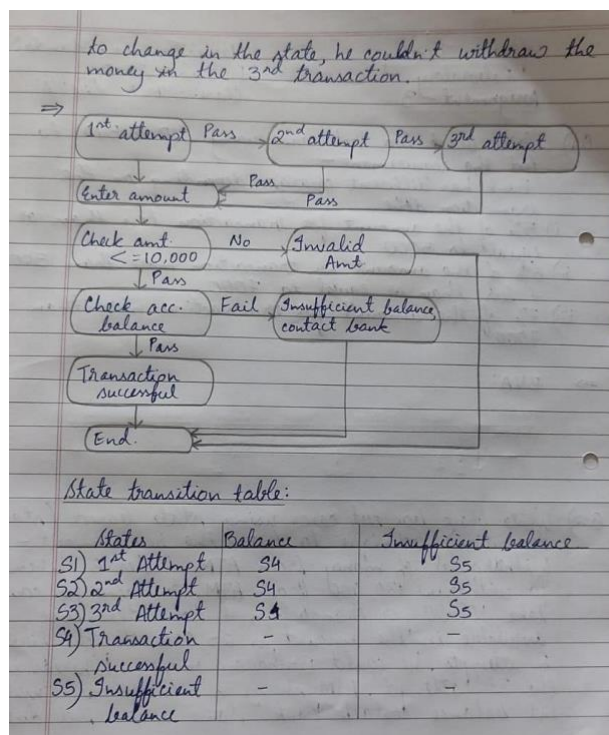 to change in the state, he couldn't withdraw the
money in the 3rd transaction.
⇒
1st attempt Pass 2nd attempt Pass 3rd attempt
Pass
Enter amount Pass
Check amt. No Invalid
<=10,000 Amt
Pass
Check acc. Fail Insufficient balance,
balance contact bank
Pass
Transaction
successful
End.
State transition table:
States Balance Insufficient balance
S1) 1st Attempt S4 S5
S2) 2nd Attempt S4 S5
S3) 3rd Attempt S4 S5
S4) Transaction - -
successful
S5) Insufficient - -
balance